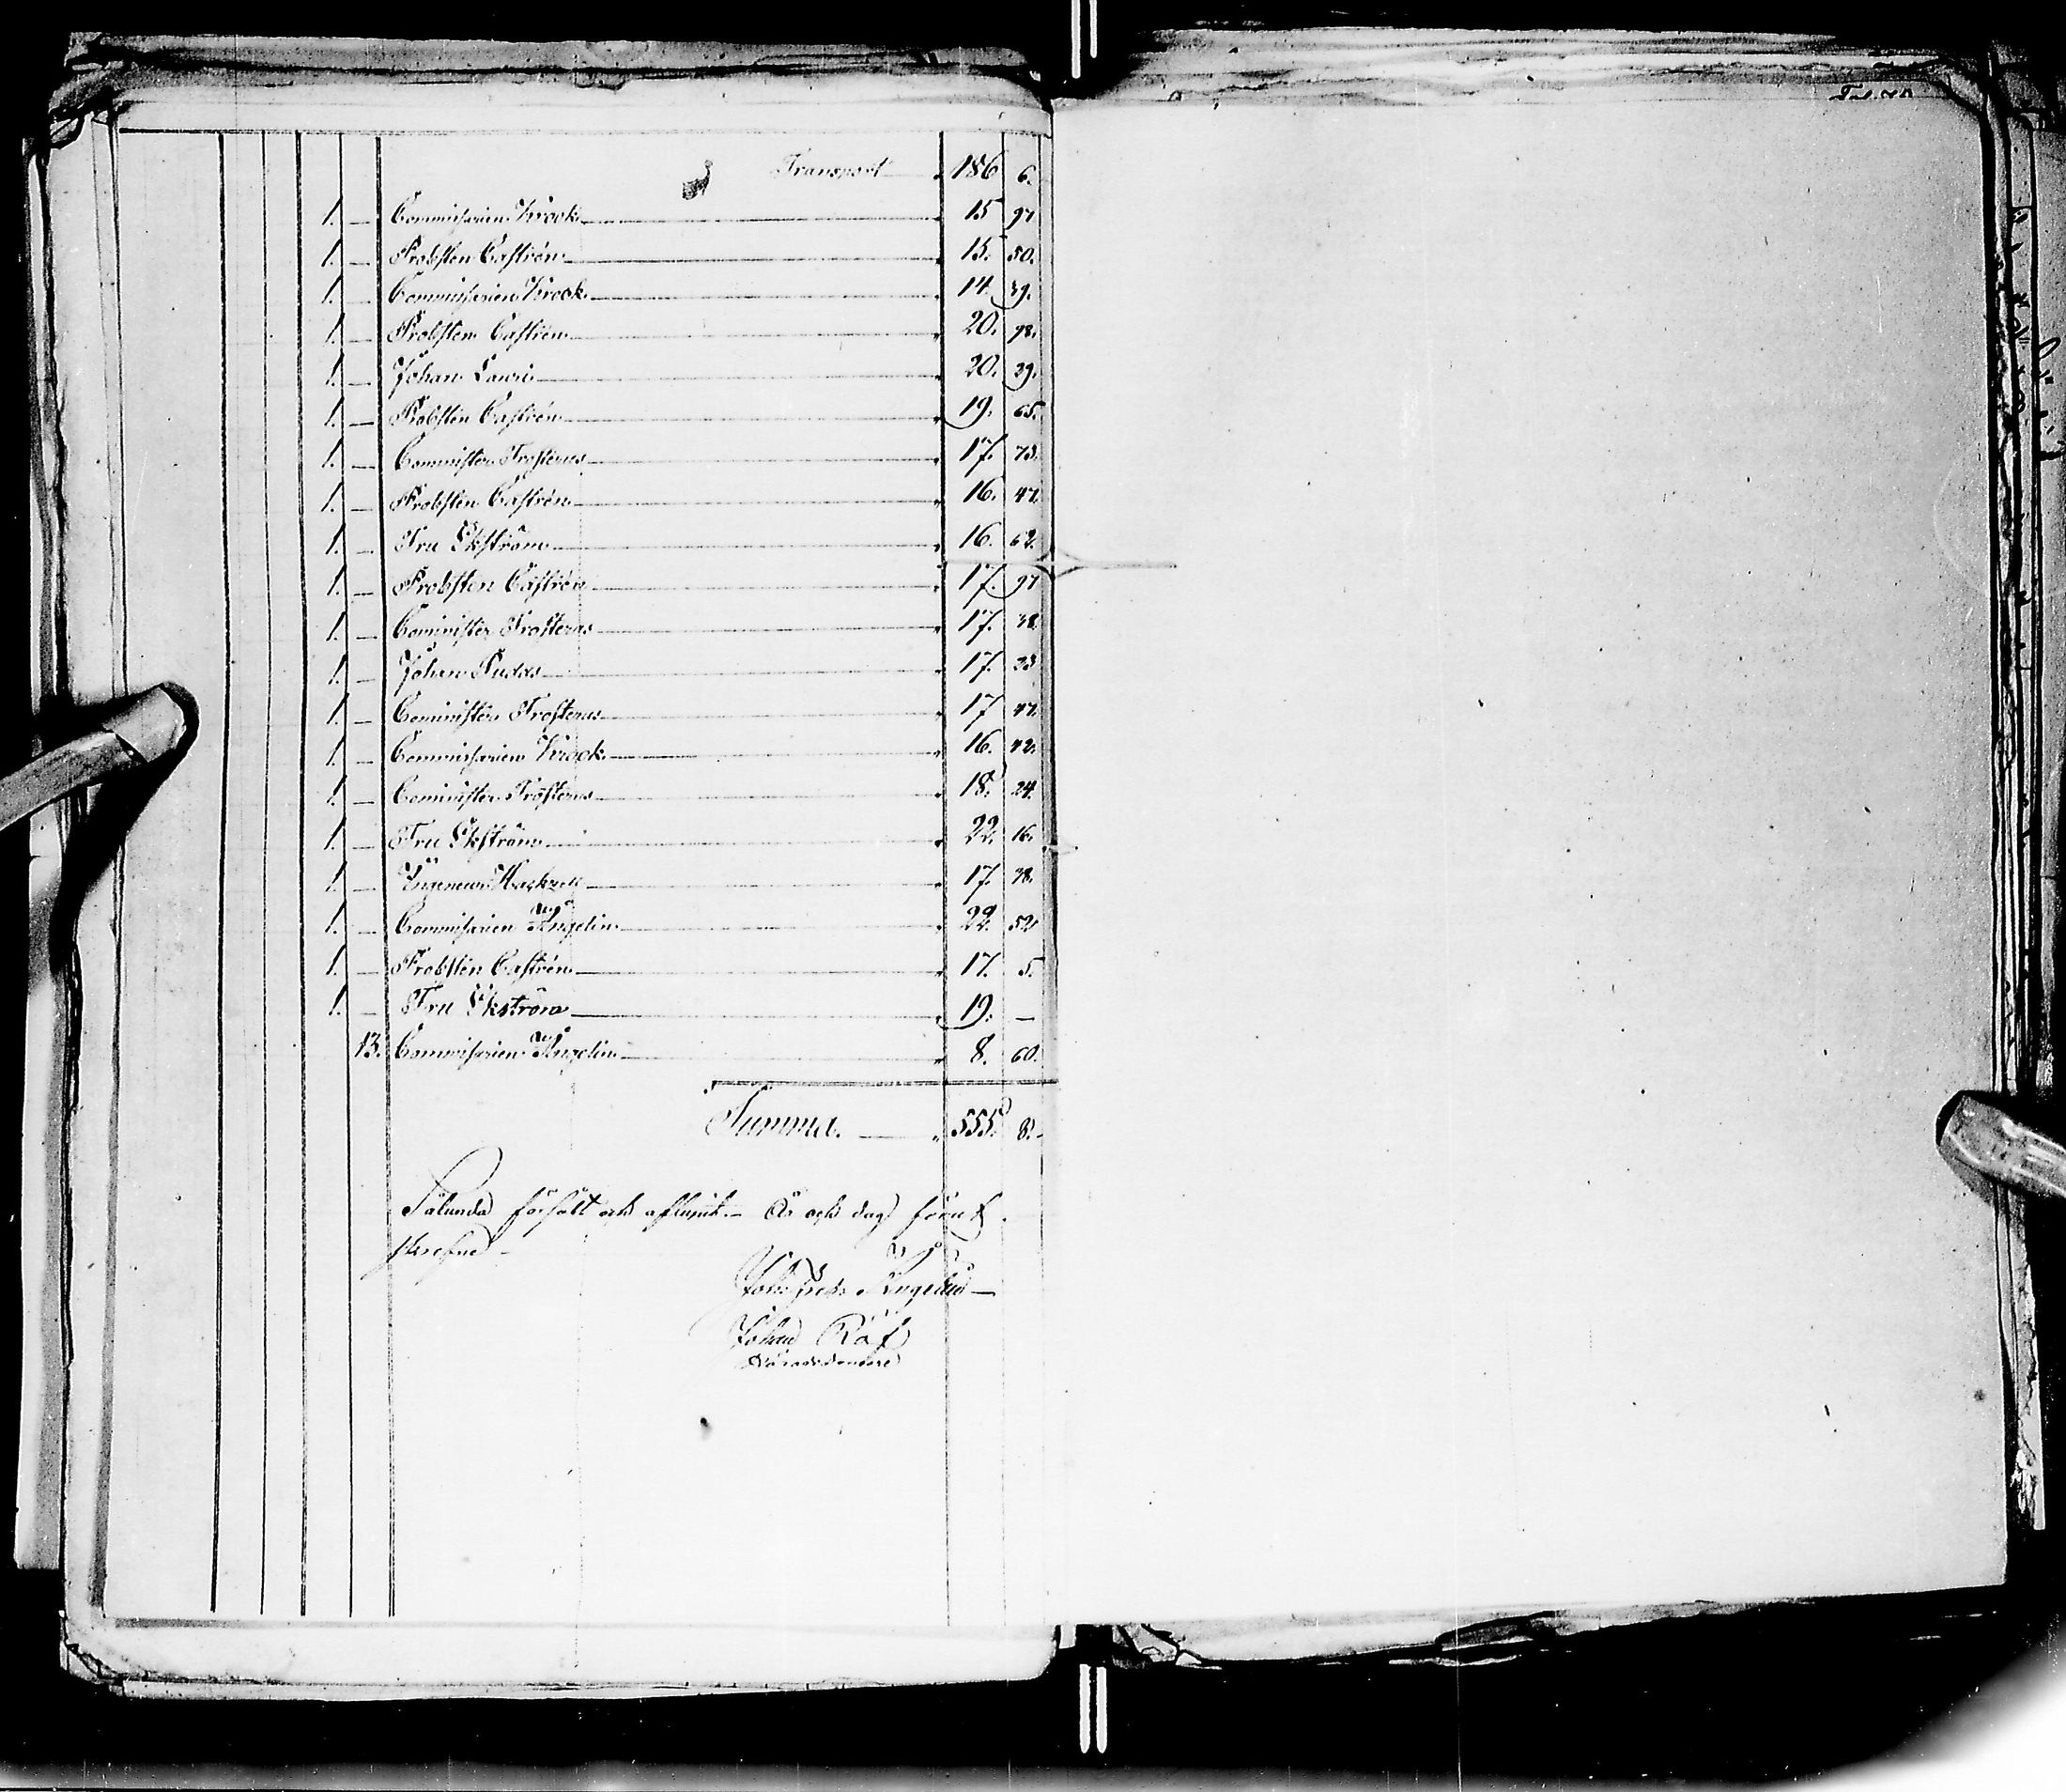 Transport 186 6.
1. — Commissarien Krook 15 97
1. — Probsten Castrén 15. 50.
1. — Commissarien Krook 14. 39.
1. — Probsten Castrén 20. 98.
1. — Johan Lauri 20. 39.
1. — Probsten Castrén 19. 65.
1. — Comminister Frosterus 17. 73.
1. — Probsten Castrén 16. 47.
1. — Fru Ekström 16. 62.
1. — Probsten Castrén 17. 97
1. — Cominister Frosterus 17. 38.
1. — Johan Pudas 17. 23
1. — Cominister Frosterus 17 47.
1. — Commissarien Krook 16. 42.
1. — Cominister Frosterus 18. 24.
1. — Fru Ekström 22. 16.
1. — Ingeneur Hackzell 17. 38.
1. — Commissarien Ångelin 22. 52
1. — Probsten Castrén 17. 5.
1. — Fru Ekström 19. —
13. Commissarien Ångelin 8. 60.
Summa. — 555. 8.
Sålunda förhölt och aflupit. — År och dag förut
skrefne —
Ångelin —
Johan Räf
Häradsdomare